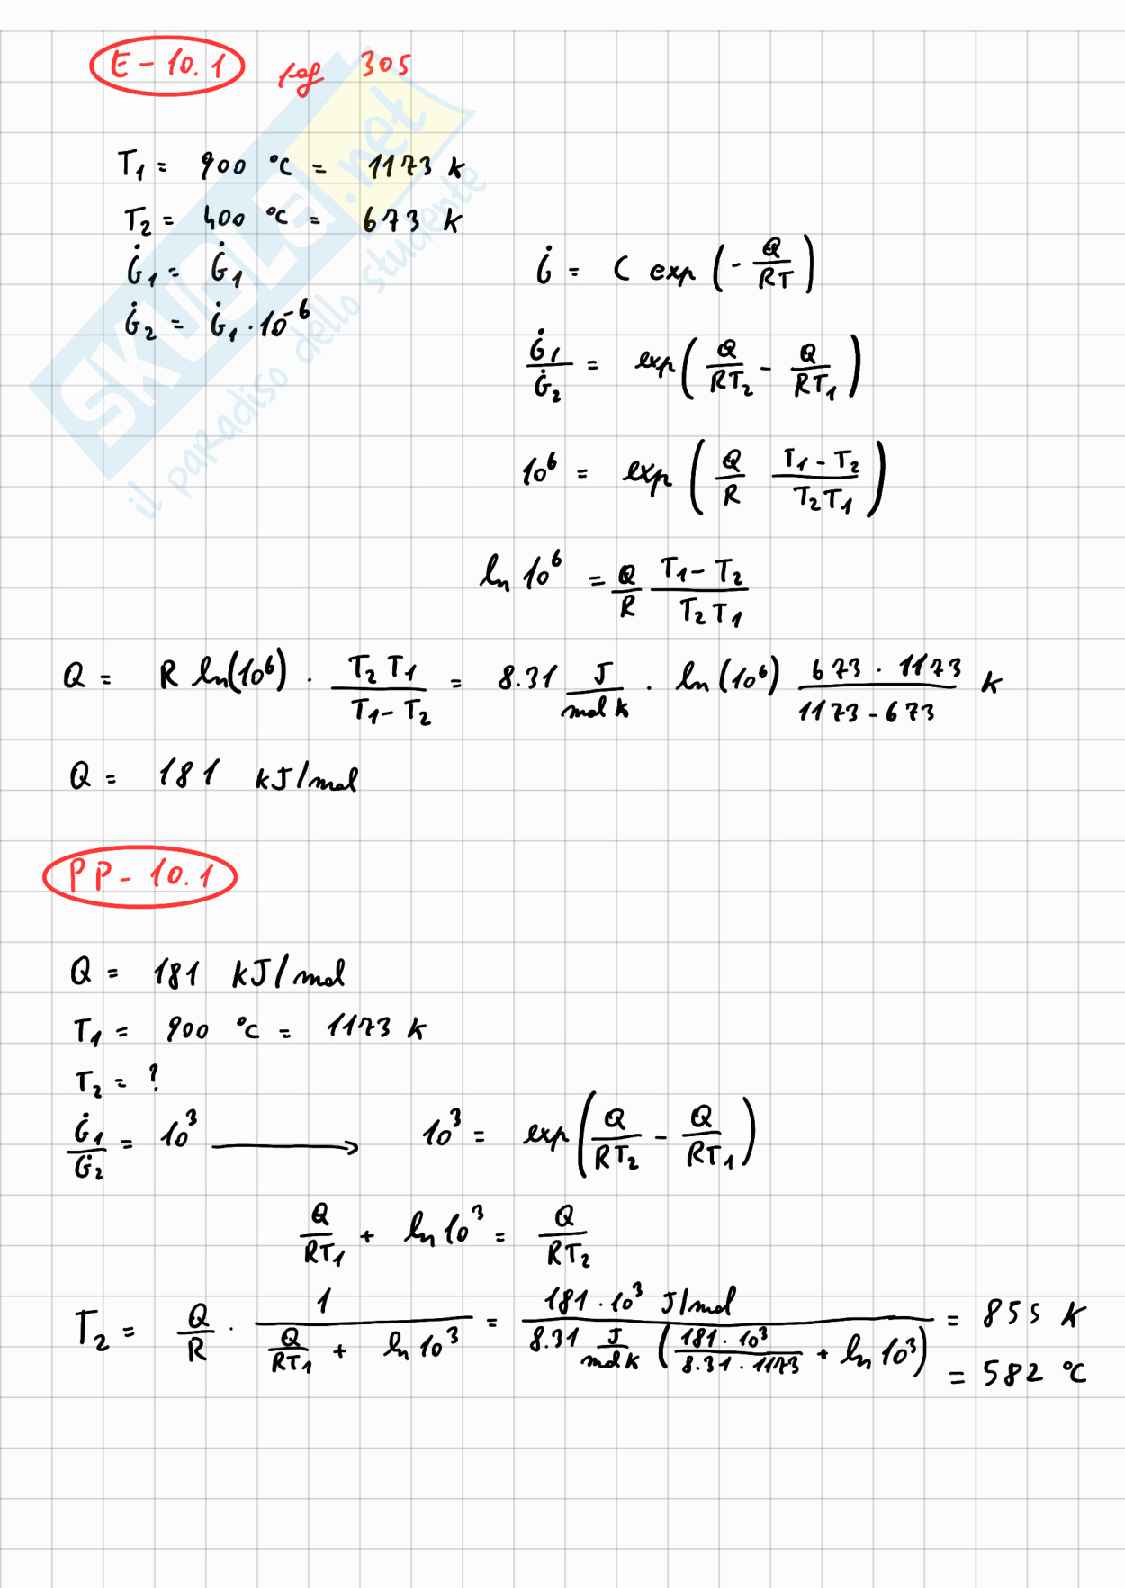 E-10.1 pag 305
T₁ = 900 °C = 1173 K
T₂ = 400 °C = 673 K
Ġ₁ = Ġ₁
Ġ₂ = Ġ₁ · 10⁻⁶
Ġ = C exp (- Q/RT)
Ġ₁/Ġ₂ = exp (Q/RT₂ - Q/RT₁)
10⁶ = exp (Q/R (T₁ - T₂)/(T₂T₁))
ln 10⁶ = Q/R (T₁ - T₂)/(T₂T₁)
Q = R ln(10⁶) · (T₂T₁)/(T₁ - T₂) = 8.31 J/(mol K) · ln(10⁶) (673 · 1173)/(1173 - 673) K
Q = 181 kJ/mol
PP-10.1
Q = 181 kJ/mol
T₁ = 900 °C = 1173 K
T₂ = ?
Ġ₁/Ġ₂ = 10³ → 10³ = exp (Q/RT₂ - Q/RT₁)
Q/RT₁ + ln 10³ = Q/RT₂
T₂ = Q/R · 1/(Q/RT₁ + ln 10³) = (181 · 10³ J/mol)/(8.31 J/(mol K) ((181 · 10³)/(8.31 · 1173) + ln 10³)) = 855 K
= 582 °C
SKUOLA.net
il paradiso dello studente